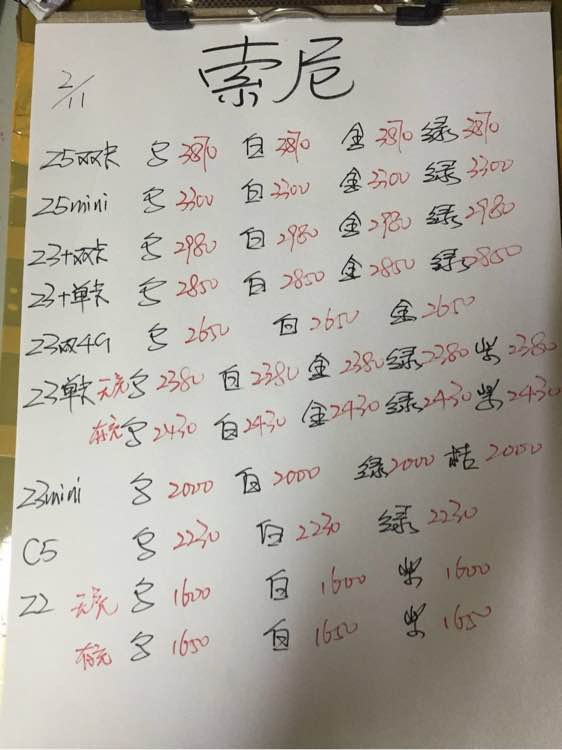 索尼
2/11
Z5双卡 黑3870 白3870 金3870 绿3870
Z5mini 黑3300 白3300 金3300 绿3300
Z3+双卡 黑2980 白2980 金2980 绿2980
Z3+单卡 黑2850 白2850 金2850 绿2850
Z3双4G 黑2650 白2650 金2650
Z3单卡 无充 黑2380 白2380 金2380 绿2380 紫2380
有充 黑2430 白2430 金2430 绿2430 紫2430
Z3mini 黑2000 白2000 绿2000 桔2000
C5 黑2230 白2230 绿2230
Z2 无充 黑1600 白1600 紫1600
有充 黑1650 白1650 紫1650